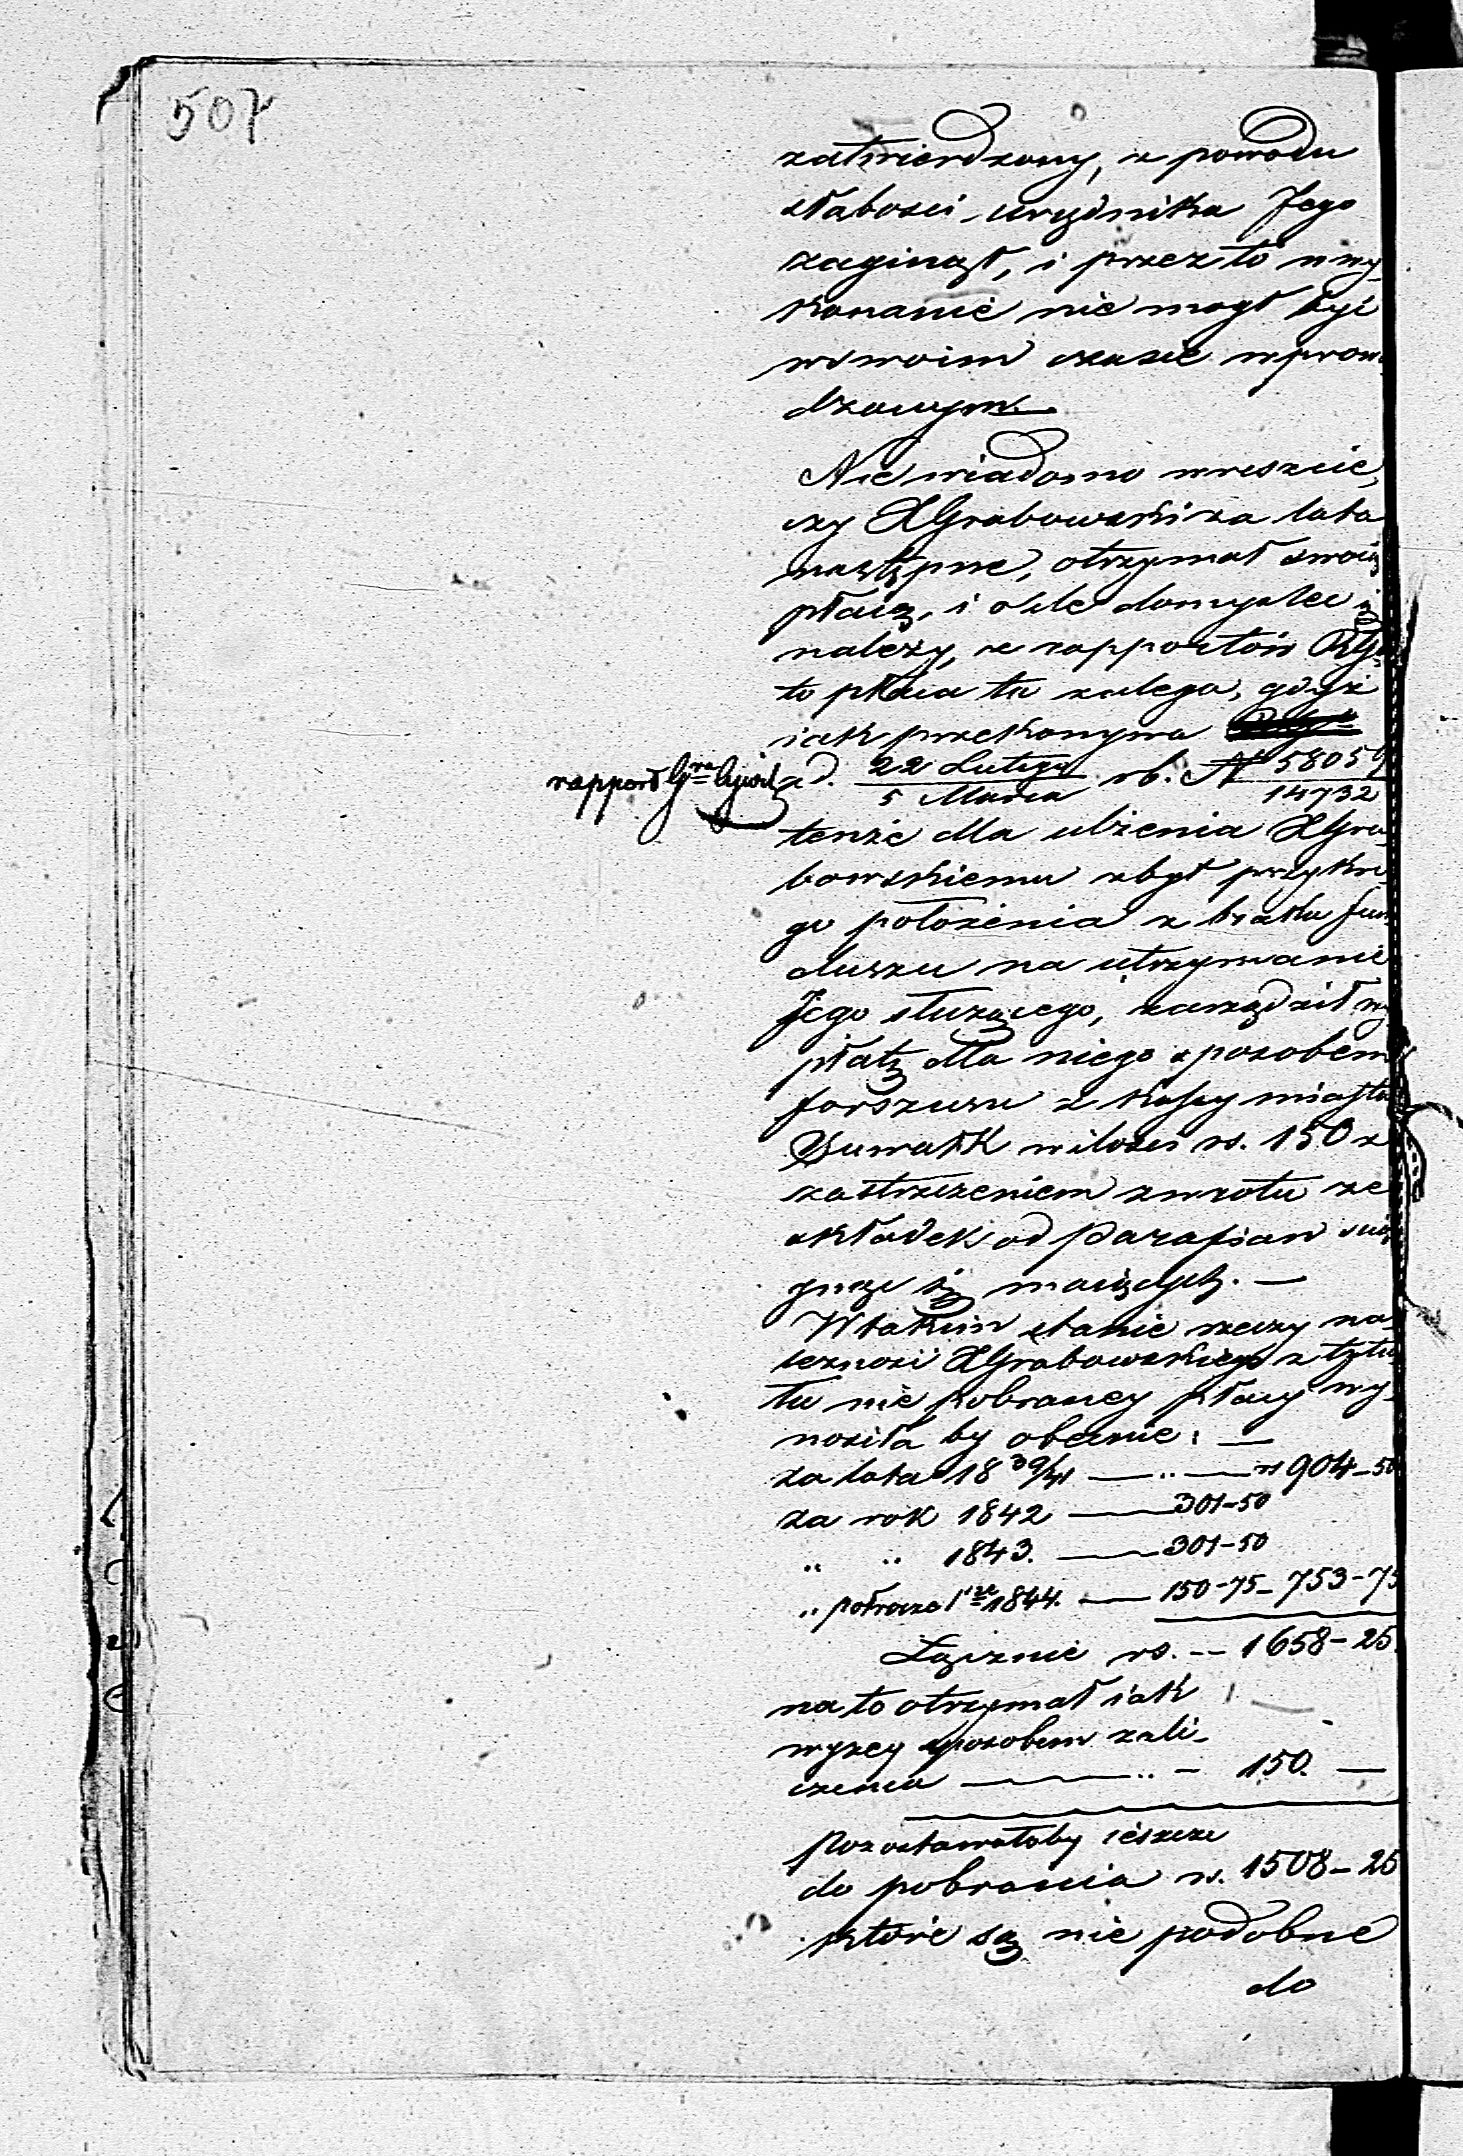 507
zatwierdzony, z powodu
słabosci urzędnika Jego
zaginął, i przez to w wy
konanie nie mogł być
w swoim czasie wprowa
dzonym.
Nie wiadomo wreszcie,
czy XGrabowski za lata
następne, otrzymał swoię
płacę, i o ile domyslec się
należy, z rapportów
to płaca ta zalega, gdyż
iak przekonywa
rapport Gra Cywil. z d. 22 Lutego / 5 Marca rb. N 58059 / 14732
tenże dla ulżenia XGra-
bowskiemu zbyt przykre-
go położenia z braku fun
duszu na utrzymanie
Jego służącego, zarządził wy
płatę dla niego sposobem
forszusu z kassy miasta
Suwałk w ilosci rs. 150 z
zastrzeżeniem zwrotu ze
składek od Parafian
gnąc się maiących. —
W takim stanie rzeczy na-
leżnosć XGrabowskiego z tytu
łu nie pobraney płacy wy-
nosiła by obecnie: —
za lata 18 39/41 — „ — rs 904-50
za rok 1842 — 301-50
„ „ 1843. — 301-50
„ połrocze 1sze 1844. — 150-75 - 753-75
Łącznie rs. -- 1658-25.
na to otrzymał iak
wyżey sposobem zali-
czenia — „ - 150. —
Pozostawałoby ieszcze
do pobrania rs. 1508-25
które są nie podobne
do